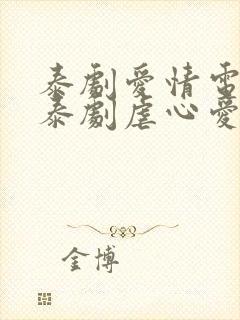 泰劇愛情電
泰劇虐心愛
金博